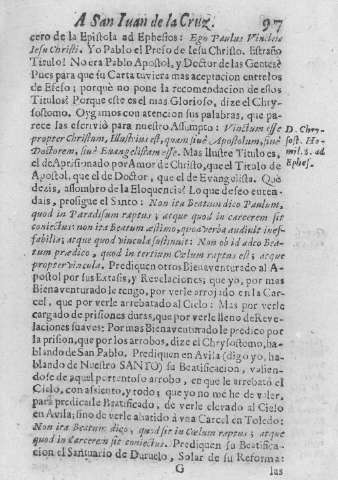 A San Iuan de la Cruz. 97
cero de la Epistola ad Ephesios: Ego Paulus Vinctus
Iesu Christi. Yo Pablo el Preso de Iesu Christo. Estraño
Titulo! No era Pablo Apostol, y Doctor de las Gentes?
Pues para que su Carta tuviera mas aceptacion entre los
de Efeso; porquè no pone la recomendacion de essos
Titulos? Porque este es el mas Glorioso, dize el Chry-
sostomo. Oygamos con atencion sus palabras, que pa-
rece las escriviò para nuestro Assumpto: Vinctum esse
propter Christum, Illustrius est, quam sive Apostolum, sive
Doctorem, sive Evangelistam esse. Mas Ilustre Titulo es,
el de Aprisionado por Amor de Christo, que el Titulo de
Apostol, que el de Doctor, que el de Evangelista. Què
dezis, assombro de la Eloquencia? Lo que deseo enten-
dais, prosigue el Santo: Non ita Beatum dico Paulum,
quod in Paradisum raptus; atque quod in carcerem sit
coniectus: non ita Beatum æstimo, quod verba audiult inef-
fabilia; atque quod vincula sustinuit: Non ob id adeo Bea-
tum prædico, quod in tertium Cœlum raptus est; atque
propter vincula. Prediquen otros Bienaventurado al A-
postol por sus Extasis, y Revelaciones; que yo, por mas
Bienaventurado le tengo, por verle arrojado en la Car-
cel, que por verle arrebatado al Cielo: Mas por verle
cargado de prisiones duras, que por verle lleno de Reve-
laciones suaves: Por mas Bienaventurado le predico por
la prision, que por los arrobos, dize el Chrysostomo, ha-
blando de San Pablo. Prediquen en Avila (digo yo, ha-
blando de Nuestro SANTO) su Beatificacion, valien-
dose de aquel portentoso arrobo, en que le arrebatò el
Cielo, con assiento, y todo; que yo no me he de valer,
para predicarle Beatificado, de verle elevado al Cielo
en Avila; sino de verle abatido à vna Carcel en Toledo:
Non ita Beatum dico, quod sit in Cœlum raptus; atque
quod in Carcerem sit coniectus. Prediquen su Beatifica-
cion el Santuario de Duruelo, Solar de su Reforma:
G las
D. Chry-
sost. Ho-
mil. 8. ad
Ephes.